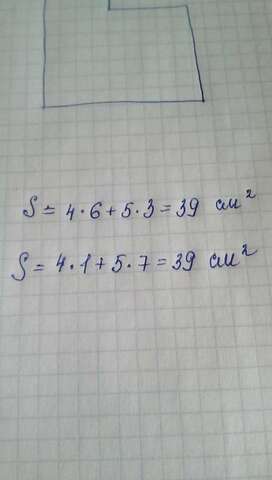 S = 4·6+5·3=39 см²
S = 4·1+5·7=39 см²